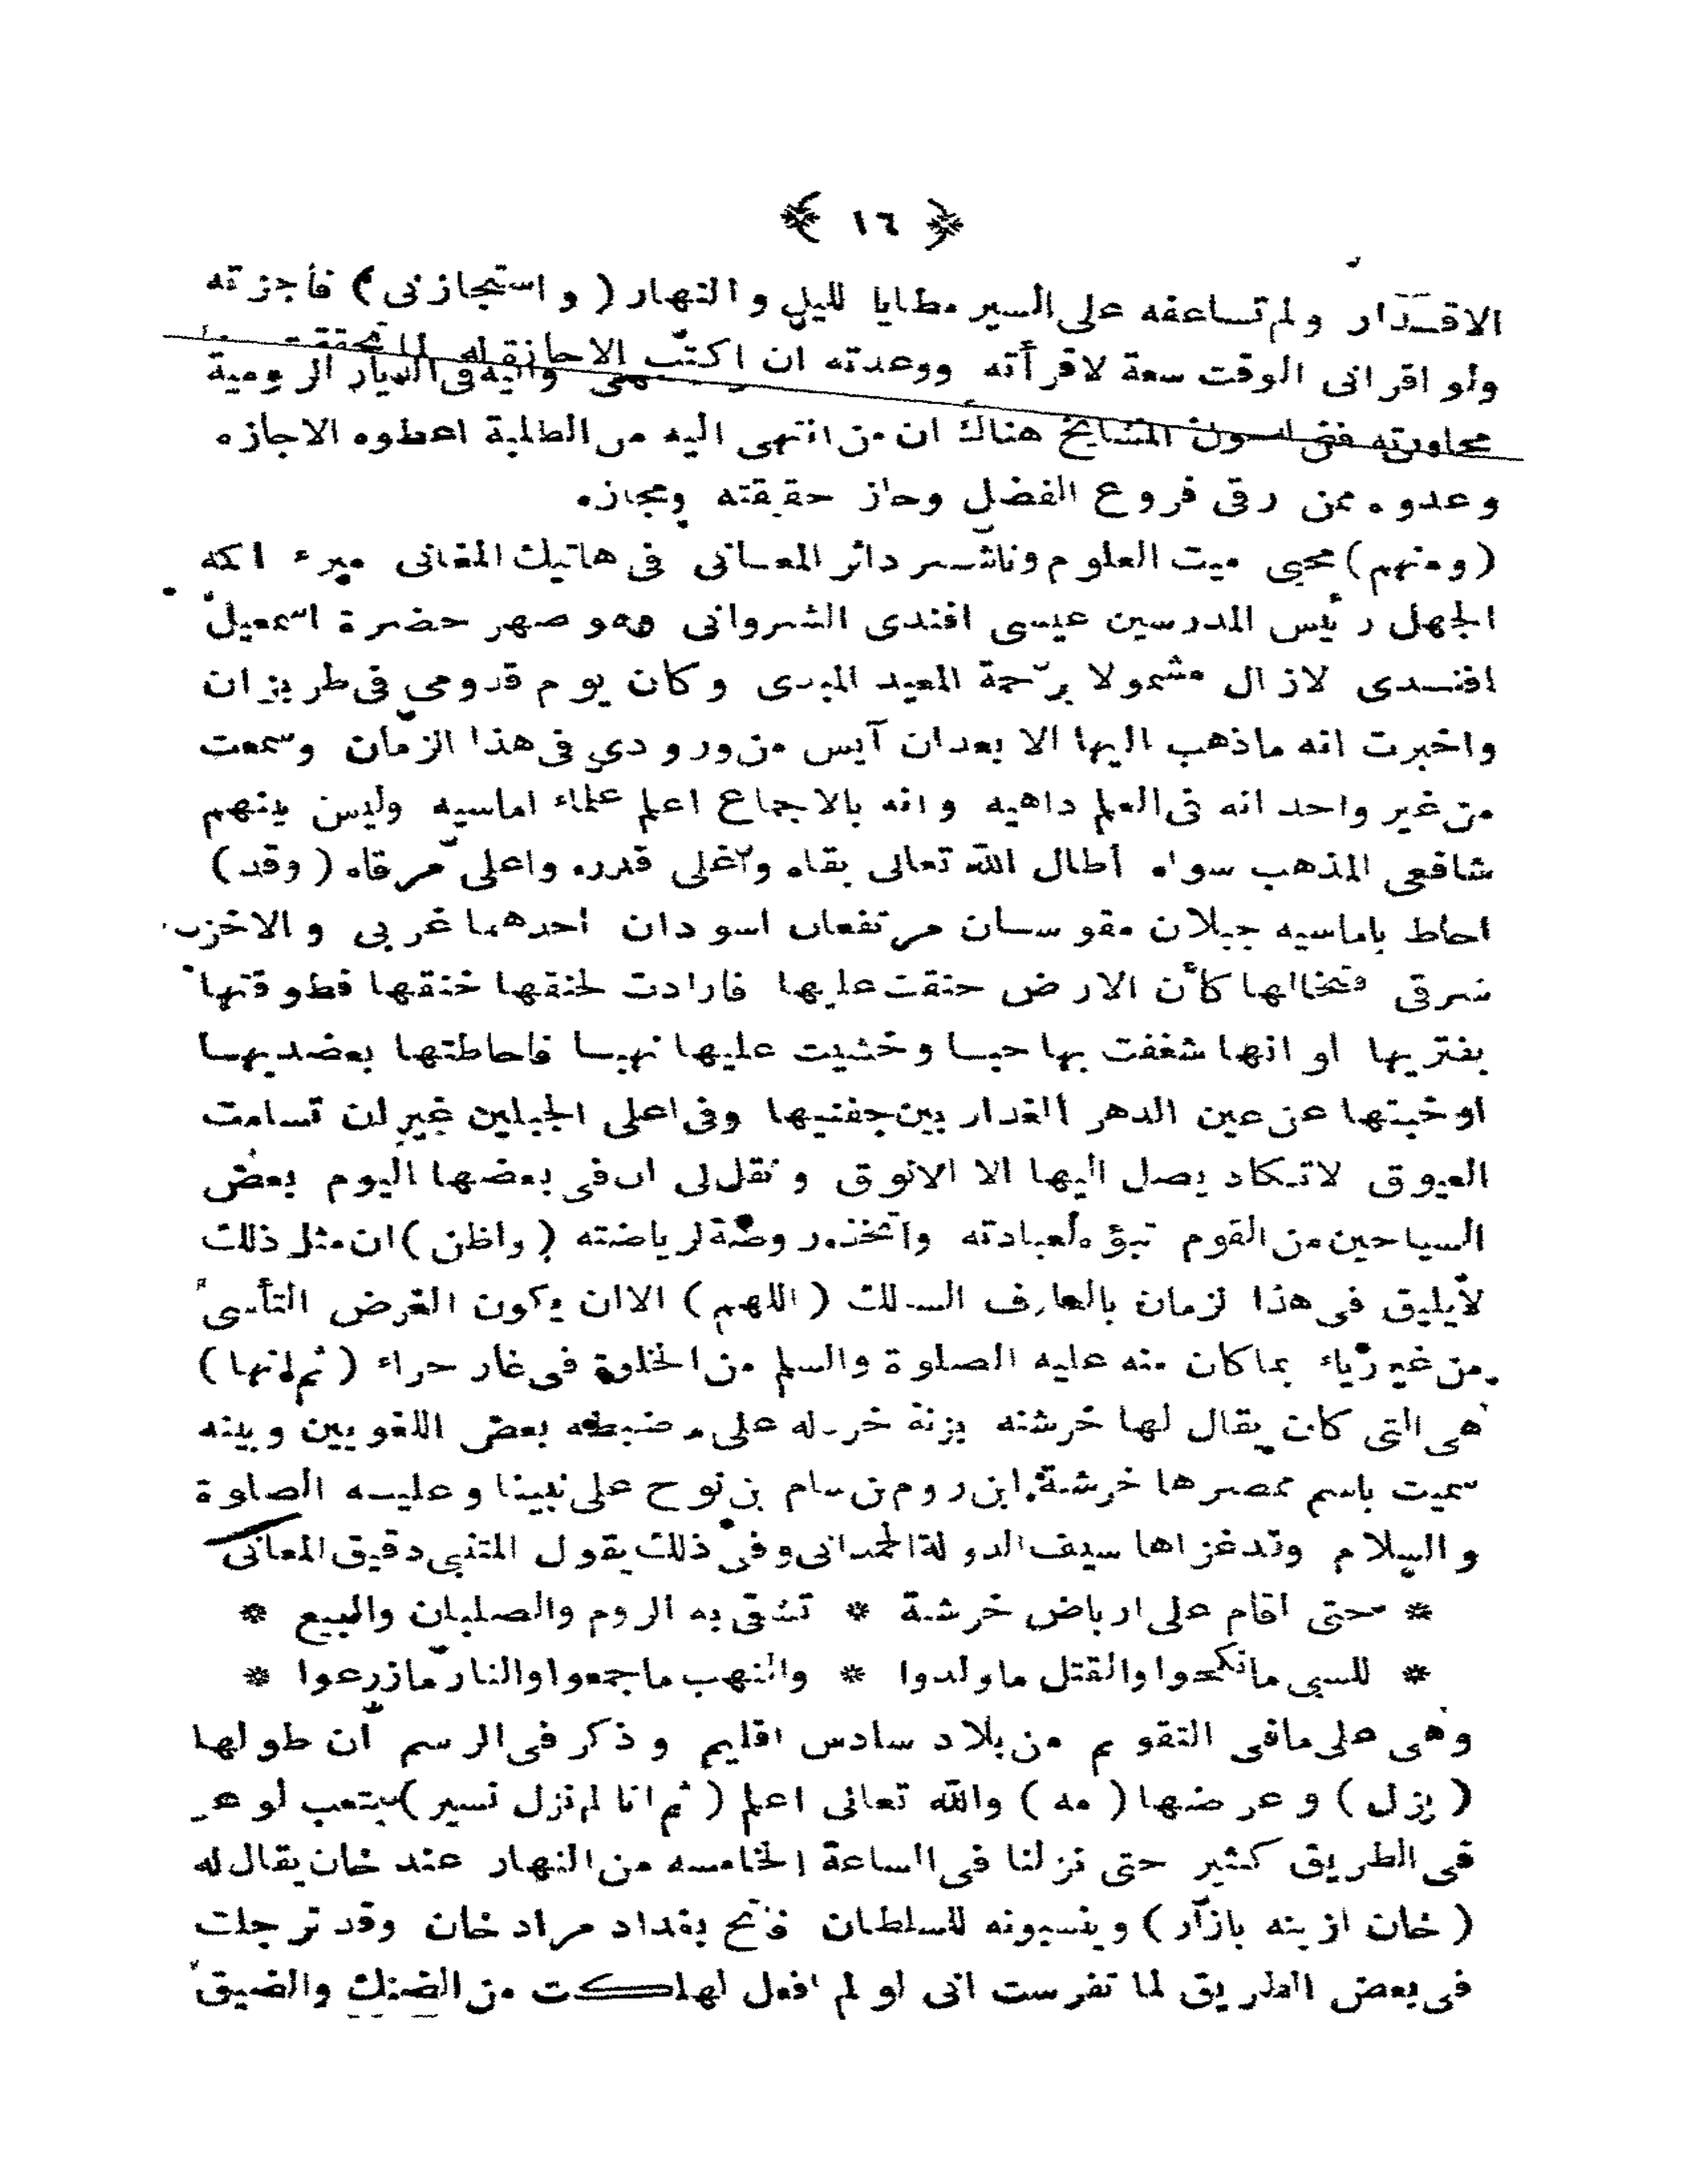 ﴿ ١٦ ﴾
الاقتدار ولم تساعفه على السير مطايا لليل والنهار ( واستجازنى ) فأجزته
ولو اقرانى الوقت سعة لاقرأته ووعدته ان اكتب الاجازة له لما تحققت
واليه فى الديار الرومية
المشايخ هناك ان من انتهى اليه من الطلبة اعطوه الاجازه
وعدوه ممن رقى فروع الفضل وحاز حقيقته ومجازه
( ومنهم ) محيى ميت العلوم وناشر داثر المعانى فى هاتيك المغانى مبرء اكمه
الجهل رئيس المدرسين عيسى افندى الشروانى وهو صهر حضرة اسمعيل
افندى لازال مشمولا برحمة المعيد المبدى وكان يوم قدومى فى طربزان
واخبرت انه ماذهب اليها الا بعد ان آيس من ورودى فى هذا الزمان وسمعت
من غير واحد انه فى العلم داهيه وانه بالاجماع اعلم علماء اماسيه وليس بينهم
شافعى المذهب سواه أطال الله تعالى بقاه واغلى قدره واعلى مرقاه ( وقد )
احاط باماسيه جبلان مقوسان مرتفعان اسودان احدهما غربى والاخر
شرقى فتخالها كأن الارض حنقت عليها فارادت لخنقها خنقها فطوقتها
بفتريها او انها شغفت بها حبا وخشيت عليها نهبا فاحاطتها بعضديها
اوخبتها عن عين الدهر الغدار بين جفنيها وفى اعلى الجبلين غيران تسامت
العيوق لاتكاد يصل اليها الا الانوق ونقل لى ان فى بعضها اليوم بعض
السياحين من القوم تبؤه لعبادته واتخذه روضة لرياضته ( واظن ) ان مثل ذلك
لايليق فى هذا لزمان بالعارف السالك ( اللهم ) الا ان يكون الغرض التأسى
من غير رياء بما كان منه عليه الصلوة والسلم من الخلوة فى غار حراء ( ثم انها )
هى التى كان يقال لها خرشنه بزنة خردله على مضبطه بعض اللغويين وبينه
سميت باسم ممصرها خرشنة ابن روم بن سام بن نوح على نبينا وعليه الصلوة
والسلام وقد غزاها سيف الدولة الحمدانى وفى ذلك يقول المتنبى دقيق المعانى
* حتى اقام على ارباض خرشنة * تشقى به الروم والصلبان والبيع *
* للسبى مانكحوا والقتل ماولدوا * والنهب ماجمعوا والنار مازرعوا *
وهى على مافى التقويم من بلاد سادس اقليم وذكر فى الرسم ان طولها
( يزل ) وعرضها ( مه ) والله تعالى اعلم ( ثم انا لم نزل نسير ) بتعب لوعر
فى الطريق كثير حتى نزلنا فى الساعة الخامسه من النهار عند خان يقال له
( خان ازينه بازار ) وينسبونه للسلطان فاتح بغداد مراد خان وقد ترجلت
فى بعض الطريق لما تفرست انى لو لم افعل لهلكت من الضنك والضيق